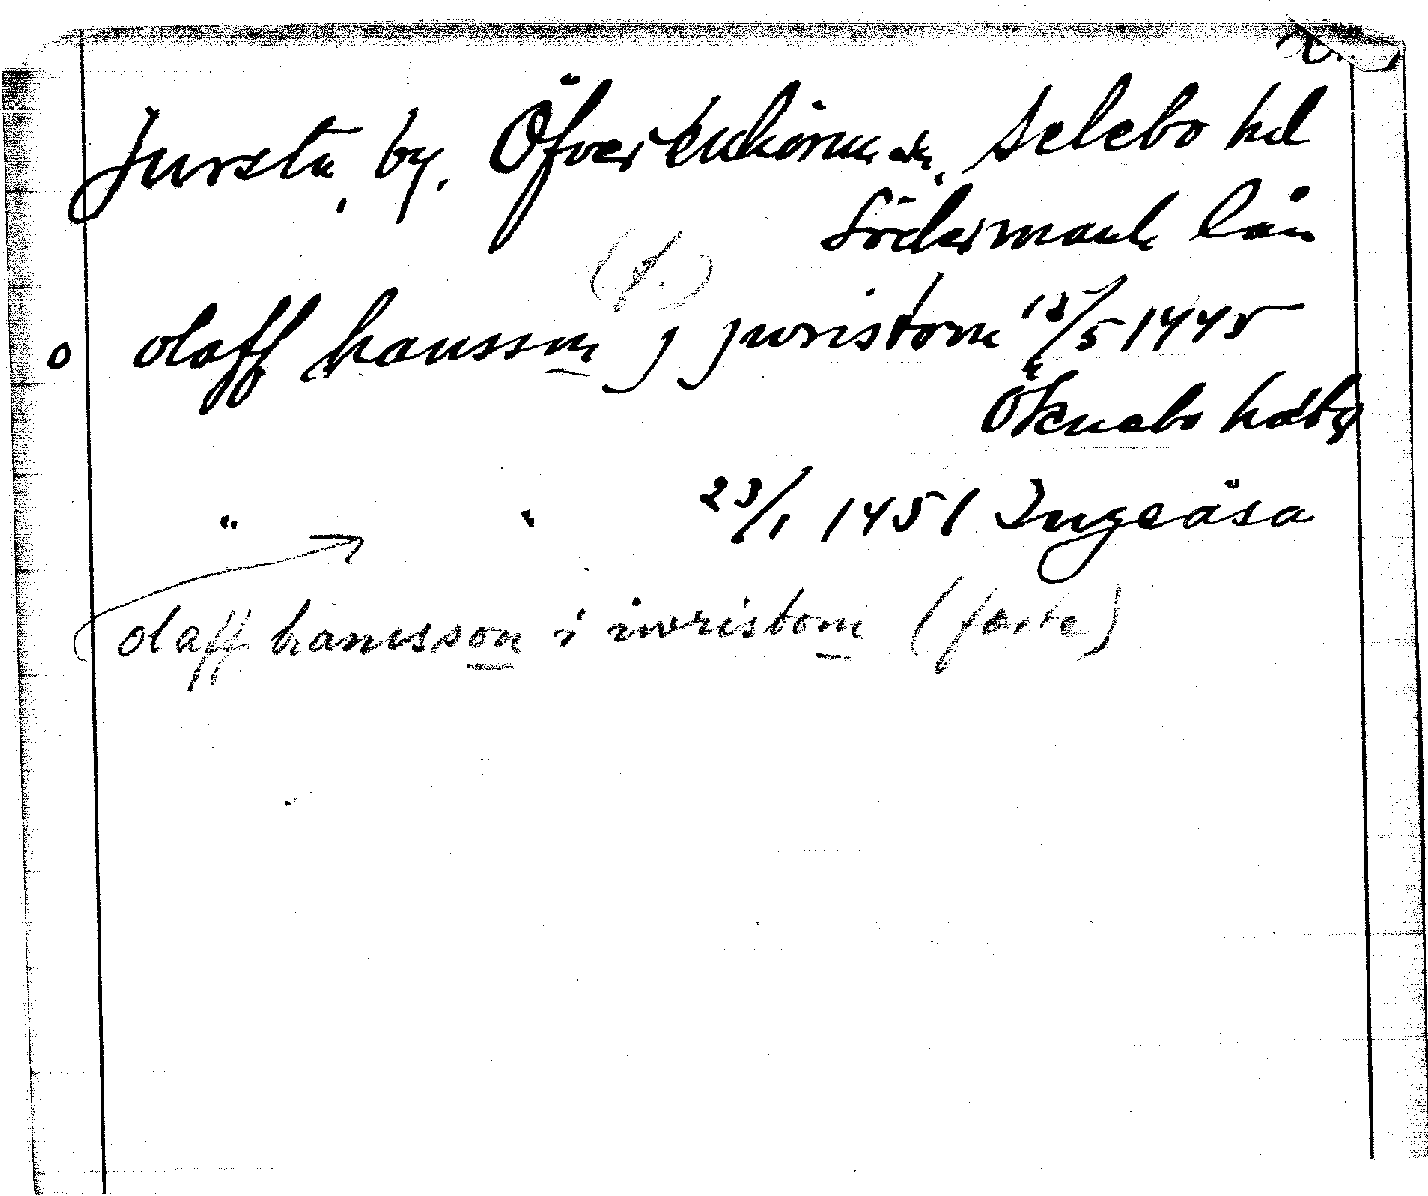 Jursta, by, Öfverenhörna sn, Selebo hd
Södermanl. län
(f.)
o olaff hansson j juristom 13/5 1445
Öknebo hdsbr
" " 23/1 1451 Ingeåsa
olaff hansson i iwristom (faste)